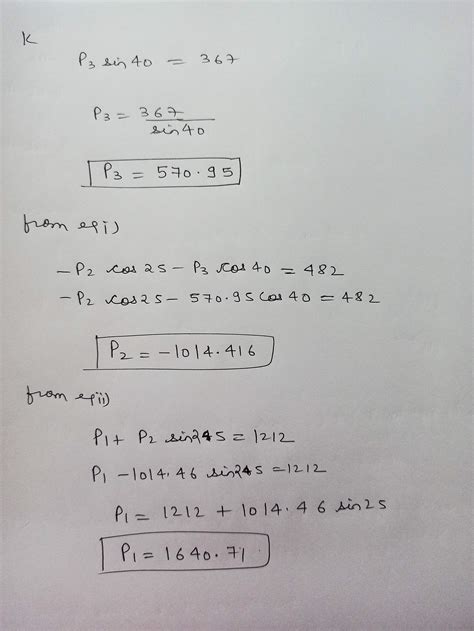 K
P3 sin 40 = 367
P3 = 367
sin 40
P3 = 570.95
from eq i)
- P2 cos 25 - P3 cos 40 = 482
- P2 cos 25 - 570.95 cos 40 = 482
P2 = -1014.416
from eq ii)
P1 + P2 sin 245 = 1212
P1 - 1014.46 sin 245 = 1212
P1 = 1212 + 1014.46 sin 25
P1 = 1640.71